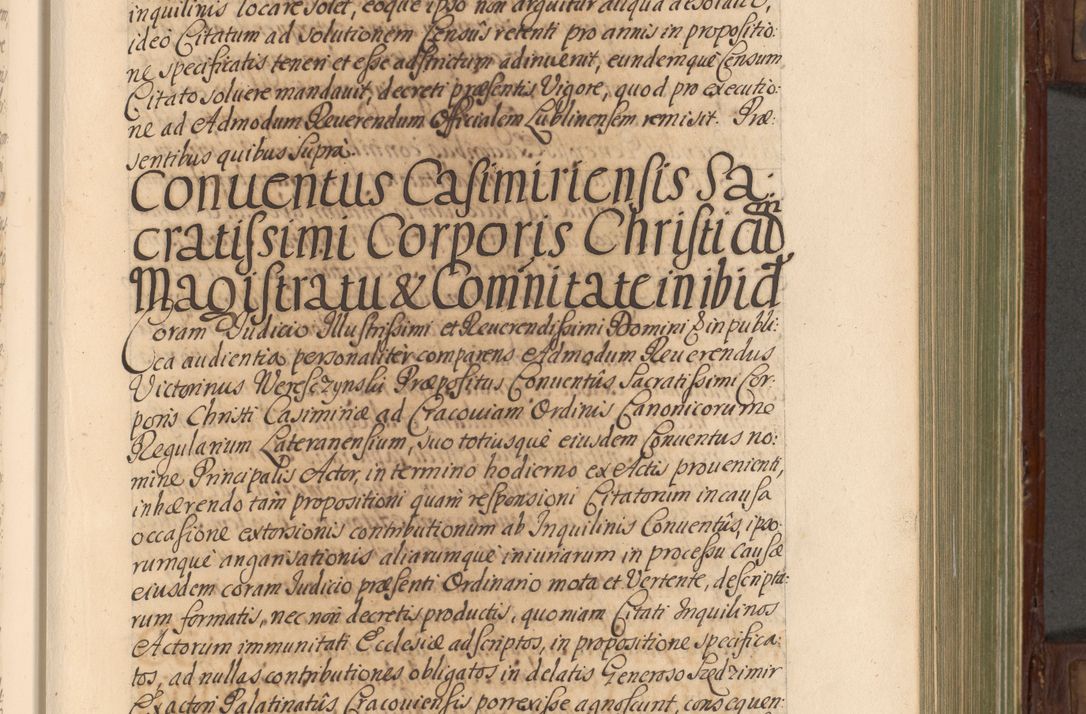 inquilinis locare solet, eoque ipso non arguitur aliqua desolatio,
ideo Citatum ad solutionem Censûs retenti pro annis in propositio:
ne specificatis teneri et esse adstrictum adinuenit, eundemque Censum
Citato soluere mandauit, decreti præsentis Vigore, quod pro executio:
ne ad Admodum Reuerendum Officialem Lublinensem remisit. Præ:
sentibus quibus supra.
Conuentus Casimiriensis Sa:
cratissimi Corporis Christi cũ
Magistratu & Com̃nitate inibid
Coram Judicio Illustrissimi et Reuerendissimi Domini & in publi:
ca audientia personaliter comparens Admodum Reuerendus
Victorinus Weresczynski Præpositus Conuentûs Sacratissimi Cor:
poris Christi Casimiriæ ad Cracouiam Ordinis Canonicorum
Regularium Lateranensium, suo totiusque eiusdem Conuentus no:
mine Principalis Actor, in termino hodierno ex Actis prouenienti,
inhærendo tam propositioni quam responsioni Citatorum in causa
occasione extorsionis contributionum ab Inquilinis Conuentûs, ipso:
rumque angarisationis aliarumque iniuriarum in processu causæ
eiusdem coram Iudicio præsenti Ordinario mota et Vertente, descripta:
rum formatis, nec non decretis productis, quoniam Citati Inquilinos
Actorum immunitati Ecclesiæ adscriptos, in propositione specifica:
tos, ad nullas contributiones obligatos in delatis Generoso Szedzimir
Exactori Palatinatûs Cracouiensis porrexisse agnoscunt, consequen: